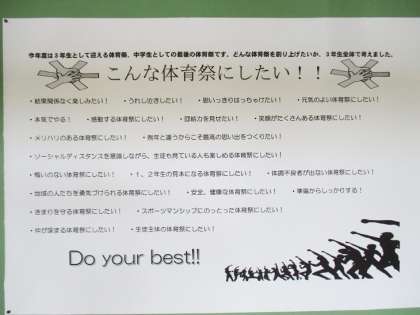 今年度は3年生として迎える体育祭、中学生としての最後の体育祭です。どんな体育祭を創り上げたいか、3年生全体で考えました。
こんな体育祭にしたい！！
・結果関係なく楽しみたい！ ・うれし泣きしたい！ ・思いっきりはっちゃけたい！ ・元気のよい体育祭にしたい！
・本気でやる！ ・感動する体育祭にしたい！ ・団結力を見せたい！ ・笑顔がたくさんある体育祭にしたい！
・メリハリのある体育祭にしたい！ ・例年と違うからこそ最高の思い出をつくりたい！
・ソーシャルディスタンスを意識しながら、生徒も見ている人も楽しめる体育祭にしたい！
・悔いのない体育祭にしたい！ ・1、2年生の見本になる体育祭にしたい！ ・体調不良者が出ない体育祭にしたい！
・地域の人たちを勇気づけられる体育祭にしたい！ ・安全、健康な体育祭にしたい！ ・準備からしっかりする！
・きまりを守る体育祭にしたい！ ・スポーツマンシップにのっとった体育祭にしたい！
・仲が深まる体育祭にしたい！ ・生徒主体の体育祭にしたい！
Do your best!!